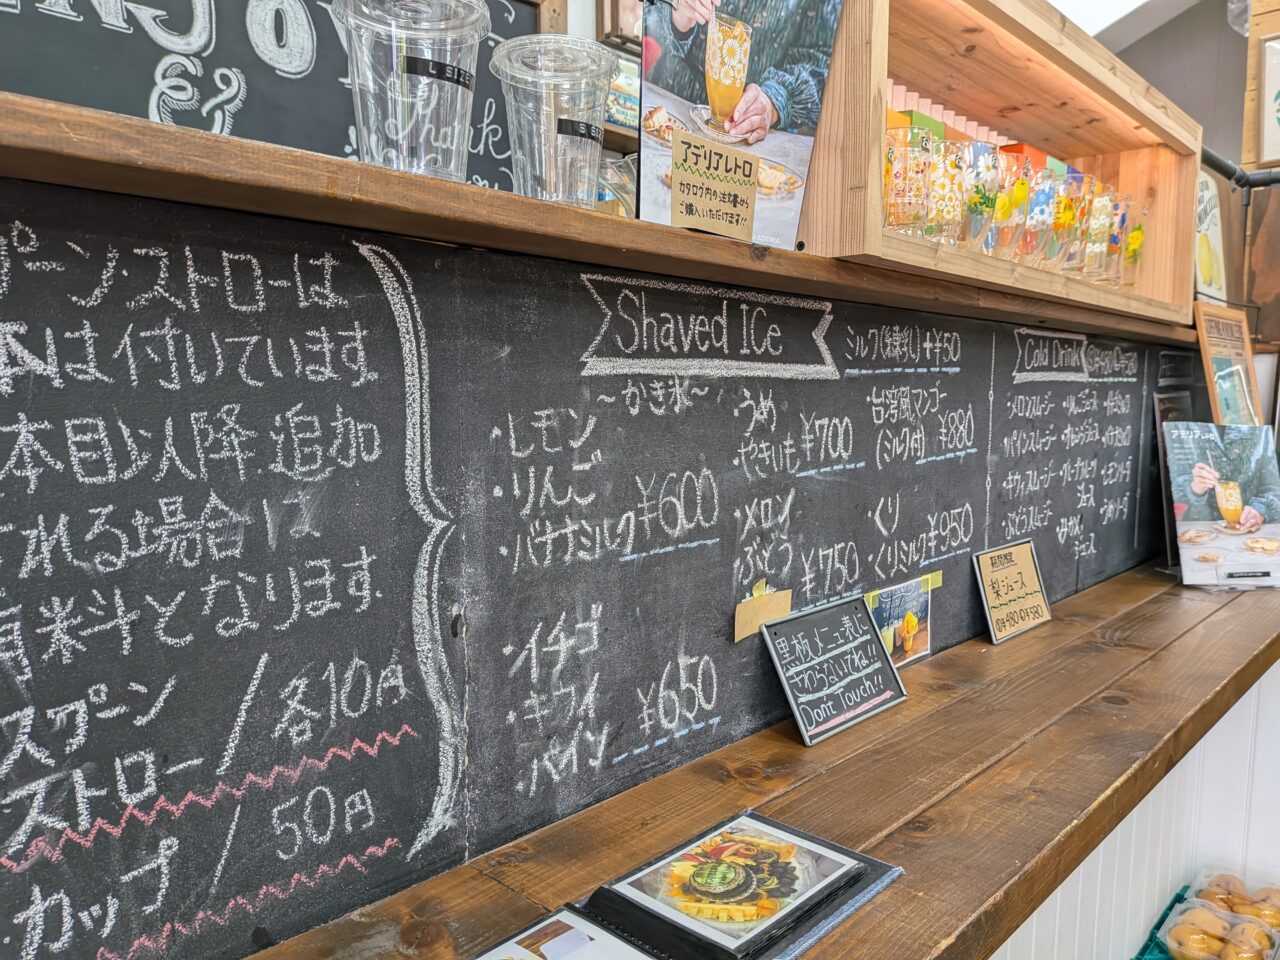 ENJOY
&
Thank
L SIZE
S SIZE
アデリアレトロ
カタログ内の注文書から
ご購入いただけます!!
ADERIA
プーン・ストローは
本は付いています。
本目以降追加
される場合は
有料となります。
スプーン
ストロー/各10円
・カップ/50円
Shaved ICe
~かき氷~
ミルク(練乳)+¥50
・レモン
・りんご
・バナナミルク ¥600
・イチゴ
・キウイ
・パイン ¥650
・うめ
・やきいも ¥700
・メロン
・ぶどう ¥750
・台湾風マンゴー
(ミルク付) ¥880
・くり
・くりミルク ¥950
Cold Drink
・メロンスムージー
・パインスムージー
・キウイスムージー
・ぶどうスムージー
・りんごジュース
・オレンジジュース
・グレープフルーツ
ジュース
・みかん
ジュース
・レモンソーダ
・うめソーダ
黒板メニュー表に
さわらないでね!!
Don't Touch!!
期間限定
梨ジュース
Ⓢ¥480 Ⓛ¥580
アデリアレトロ